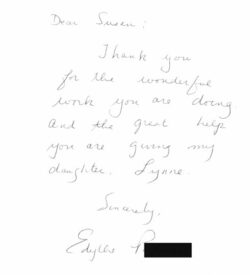 Dear Susan:
Thank you
for the wonderful
work you are doing
and the great help
you are giving my
daughter, Lynne.
Sincerely,
Edythe P